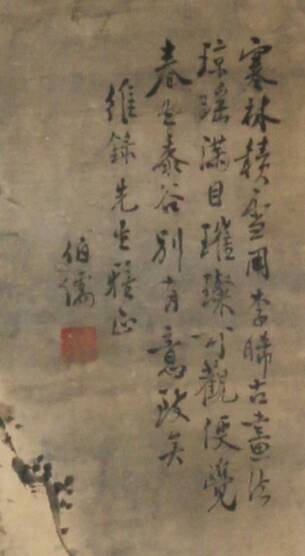 寒林積雪用李晞古畫法
琼瑶滿目璀璨可觀便覺
春生黍谷別有意致矣
維錄先生雅正
伯儒